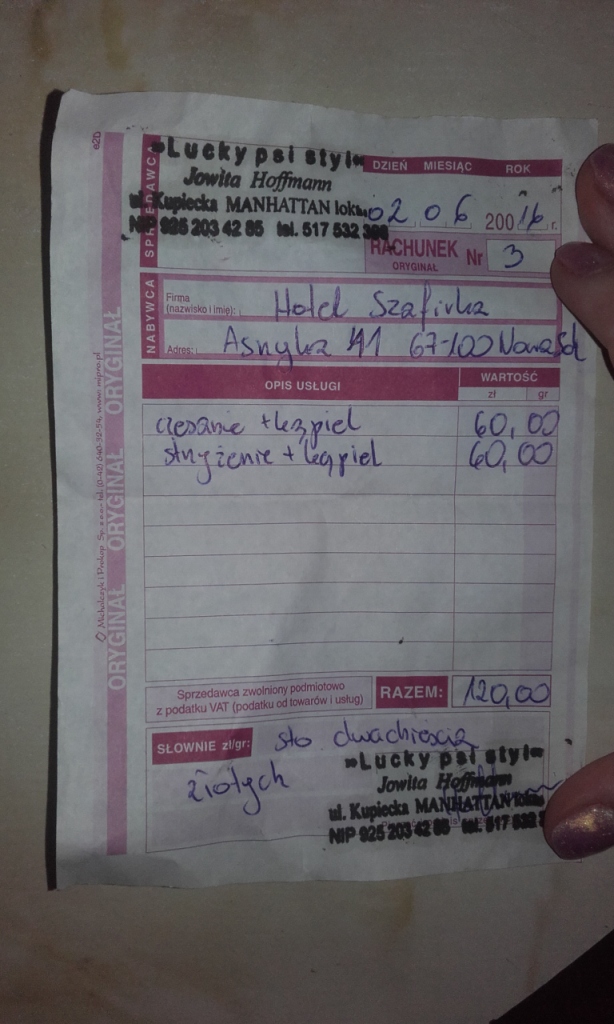 e2D
»Lucky psi styl«
Jowita Hoffmann
ul. Kupiecka MANHATTAN
NIP 925 203 42 85 tel. 517 532
SPRZEDAWCA
DZIEŃ MIESIĄC ROK
02 06 200 16 r.
RACHUNEK Nr 3
ORYGINAŁ
NABYWCA
Firma
(nazwisko i imię): Hotel Szafirka
Adres: Asnyka 41 67-100 Nowa Sól
OPIS USŁUGI WARTOŚĆ
zł gr
czesanie + kąpiel 60,00
strzyżenie + kąpiel 60,00
Sprzedawca zwolniony podmiotowo
z podatku VAT (podatku od towarów i usług)
RAZEM: 120,00
SŁOWNIE zł/gr: sto dwadzieścia
złotych
»Lucky psi styl«
Jowita Hoffmann
ul. Kupiecka MANHATTAN
NIP 925 203 42 85 tel. 517 532
ORYGINAŁ ORYGINAŁ ORYGINAŁ
Michalczyk i Prokop Sp. z o.o. www.mipro.pl